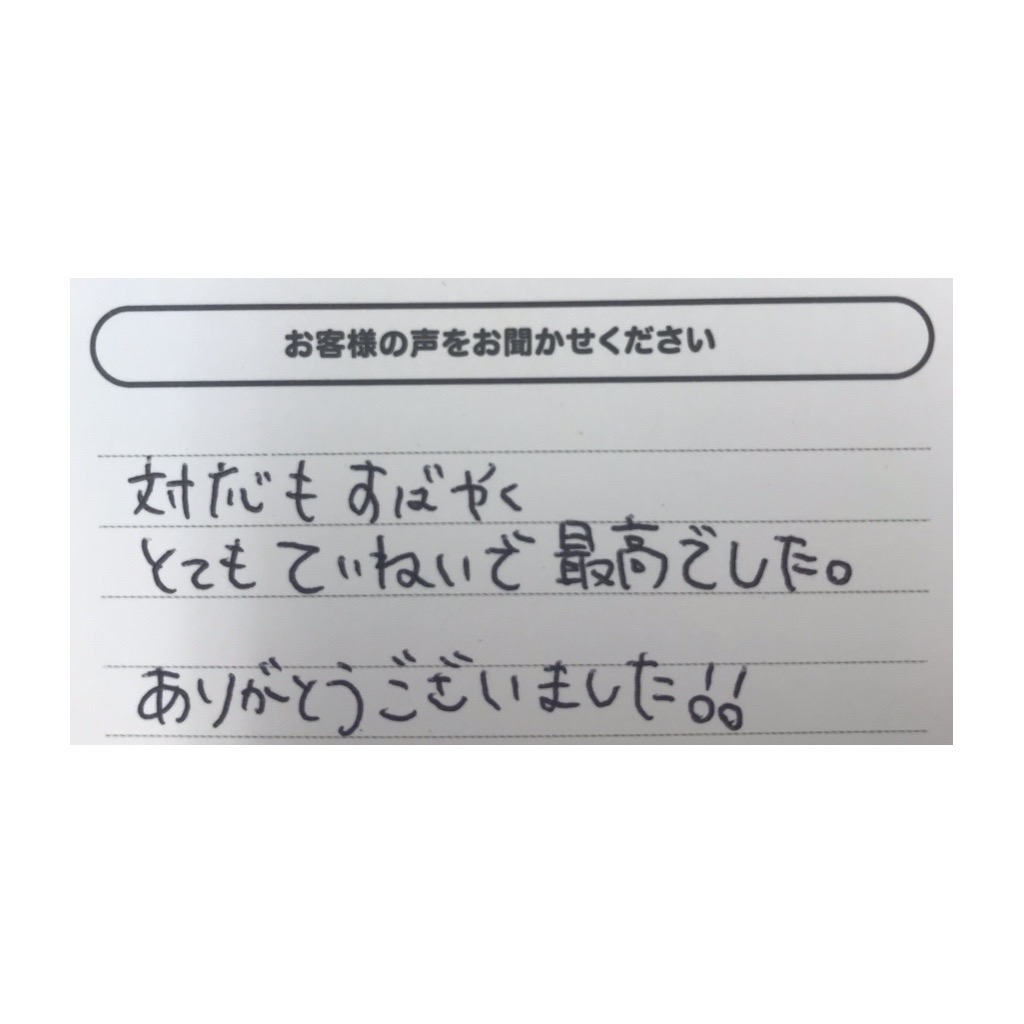 お客様の声をお聞かせください
対応もすばやく
とてもていねいで最高でした。
ありがとうございました!!